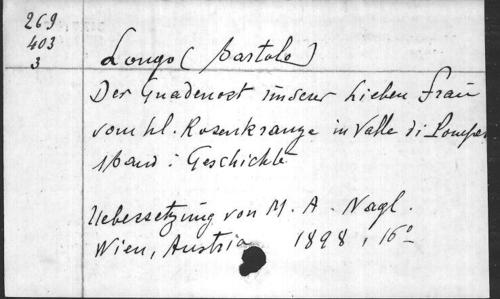 269
403
3
Longo (Bartolo)
Der Gnadenort unserer Lieben Frau
vom hl. Rosenkranze in Valle di Pompei
1 Band : Geschichte
Uebersetzung von M. A. Nagl.
Wien, Austria 1898, 16º